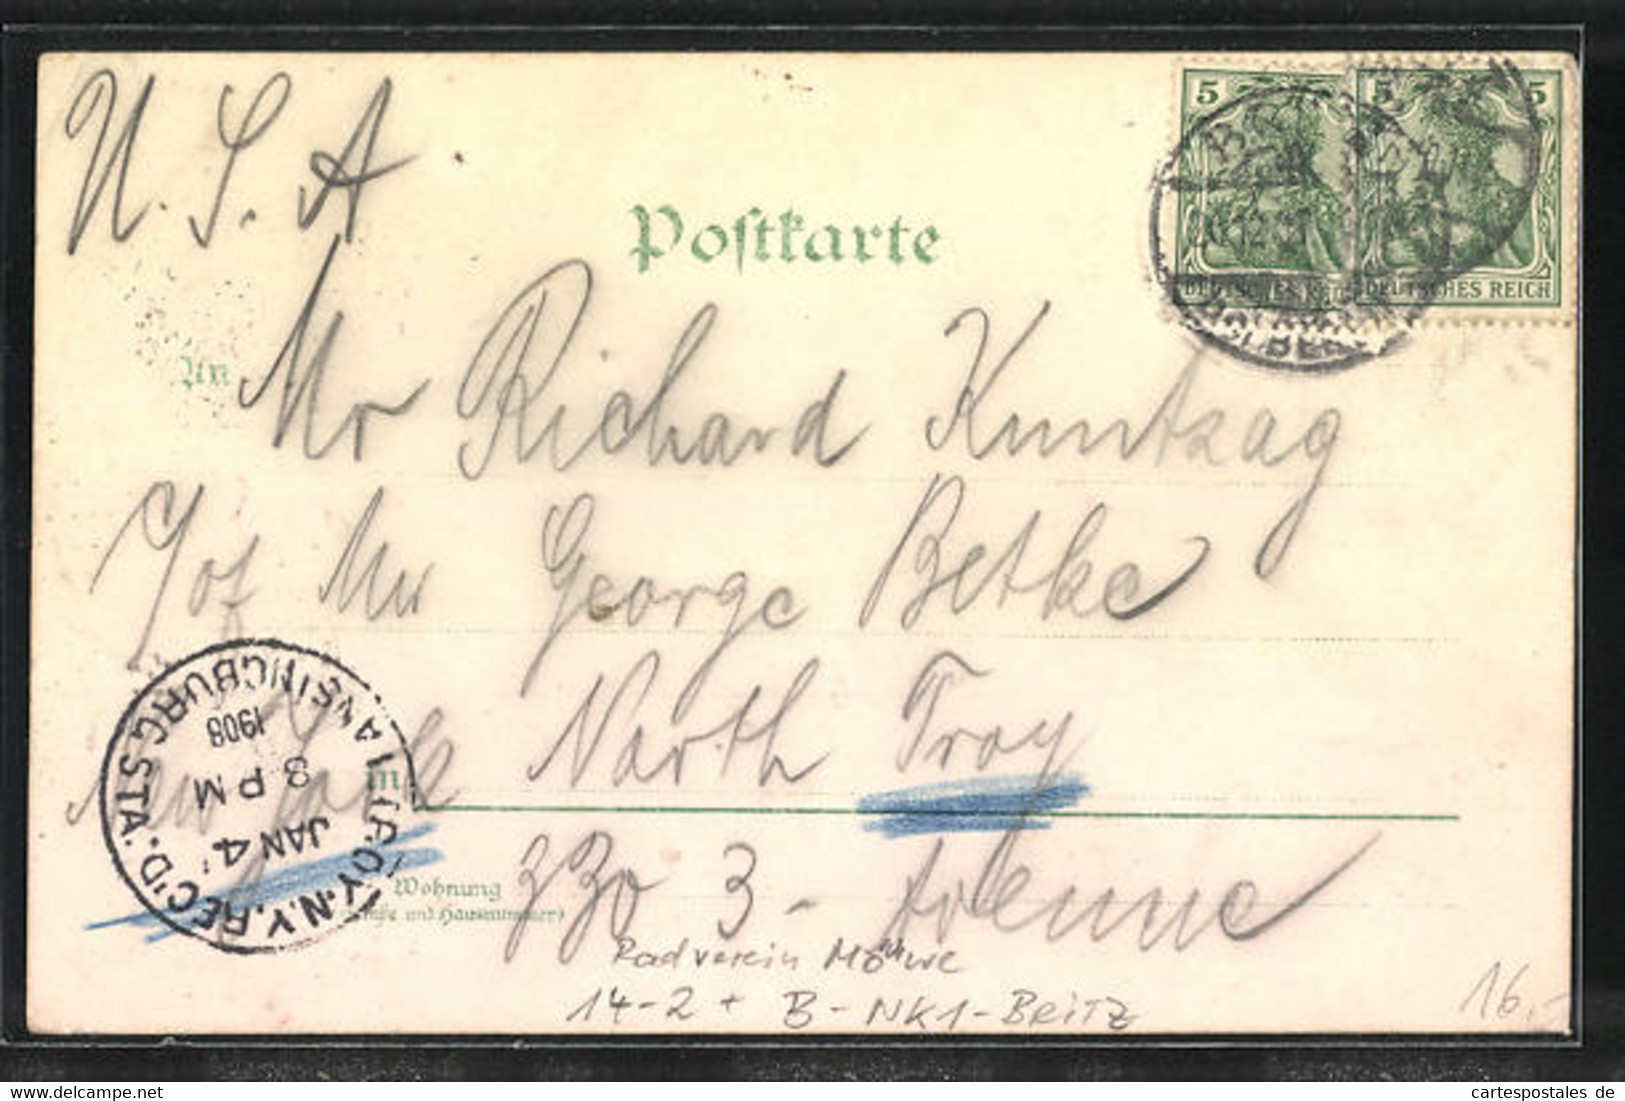 U. S. A
Postkarte
5 5 5
DEUTSCHES REICH DEUTSCHES REICH
An
Mr Richard Kuntzag
c/of Mr George Betke
in North Troy
New York
330 3 - Avenue
Wohnung
(Straße und Hausnummer)
TROY. N.Y. REC'D. LANSINGBURG STA.
JAN 4
8 PM
1908
Radverein Möwe
14-2 + B-NK1-Britz
16,-
cartespostales de